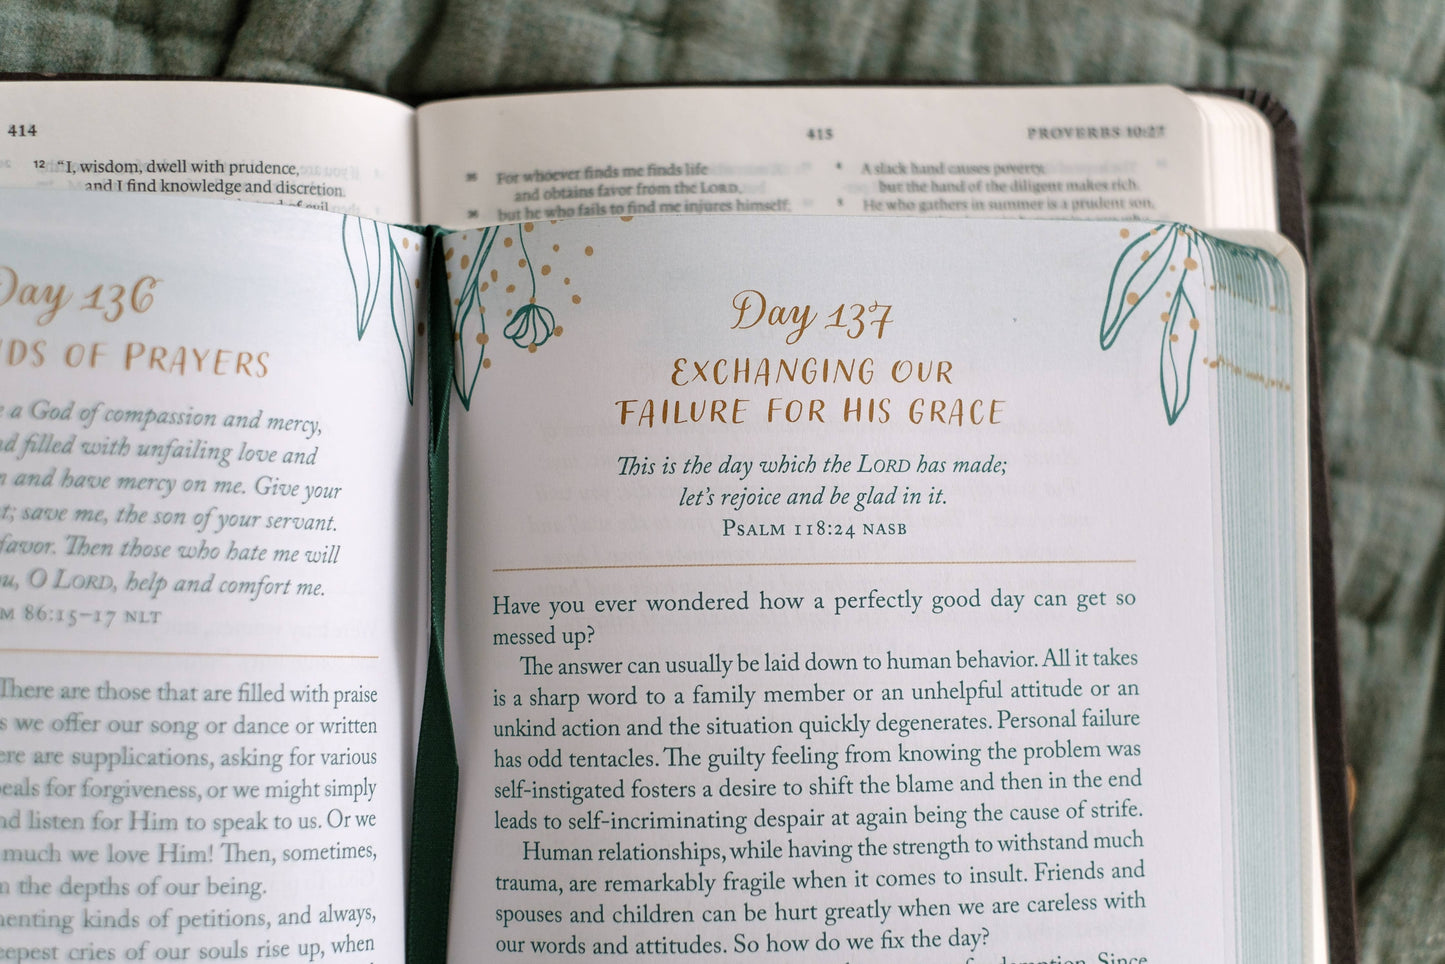 414
12 "I, wisdom, dwell with prudence,
and I find knowledge and discretion.
of evil
415
PROVERBS 10:27
35 For whoever finds me finds life
and obtains favor from the LORD,
36 but he who fails to find me injures himself;
4 A slack hand causes poverty,
but the hand of the diligent makes rich.
5 He who gathers in summer is a prudent son,
Day 136
OF PRAYERS
a God of compassion and mercy,
filled with unfailing love and
and have mercy on me. Give your
save me, the son of your servant.
favor. Then those who hate me will
O LORD, help and comfort me.
86:15–17 NLT
There are those that are filled with praise
we offer our song or dance or written
are supplications, asking for various
for forgiveness, or we might simply
listen for Him to speak to us. Or we
much we love Him! Then, sometimes,
the depths of our being.
kinds of petitions, and always,
cries of our souls rise up, when
Day 137
EXCHANGING OUR
FAILURE FOR HIS GRACE
This is the day which the LORD has made;
let's rejoice and be glad in it.
PSALM 118:24 NASB
Have you ever wondered how a perfectly good day can get so
messed up?
The answer can usually be laid down to human behavior. All it takes
is a sharp word to a family member or an unhelpful attitude or an
unkind action and the situation quickly degenerates. Personal failure
has odd tentacles. The guilty feeling from knowing the problem was
self-instigated fosters a desire to shift the blame and then in the end
leads to self-incriminating despair at again being the cause of strife.
Human relationships, while having the strength to withstand much
trauma, are remarkably fragile when it comes to insult. Friends and
spouses and children can be hurt greatly when we are careless with
our words and attitudes. So how do we fix the day?
Since